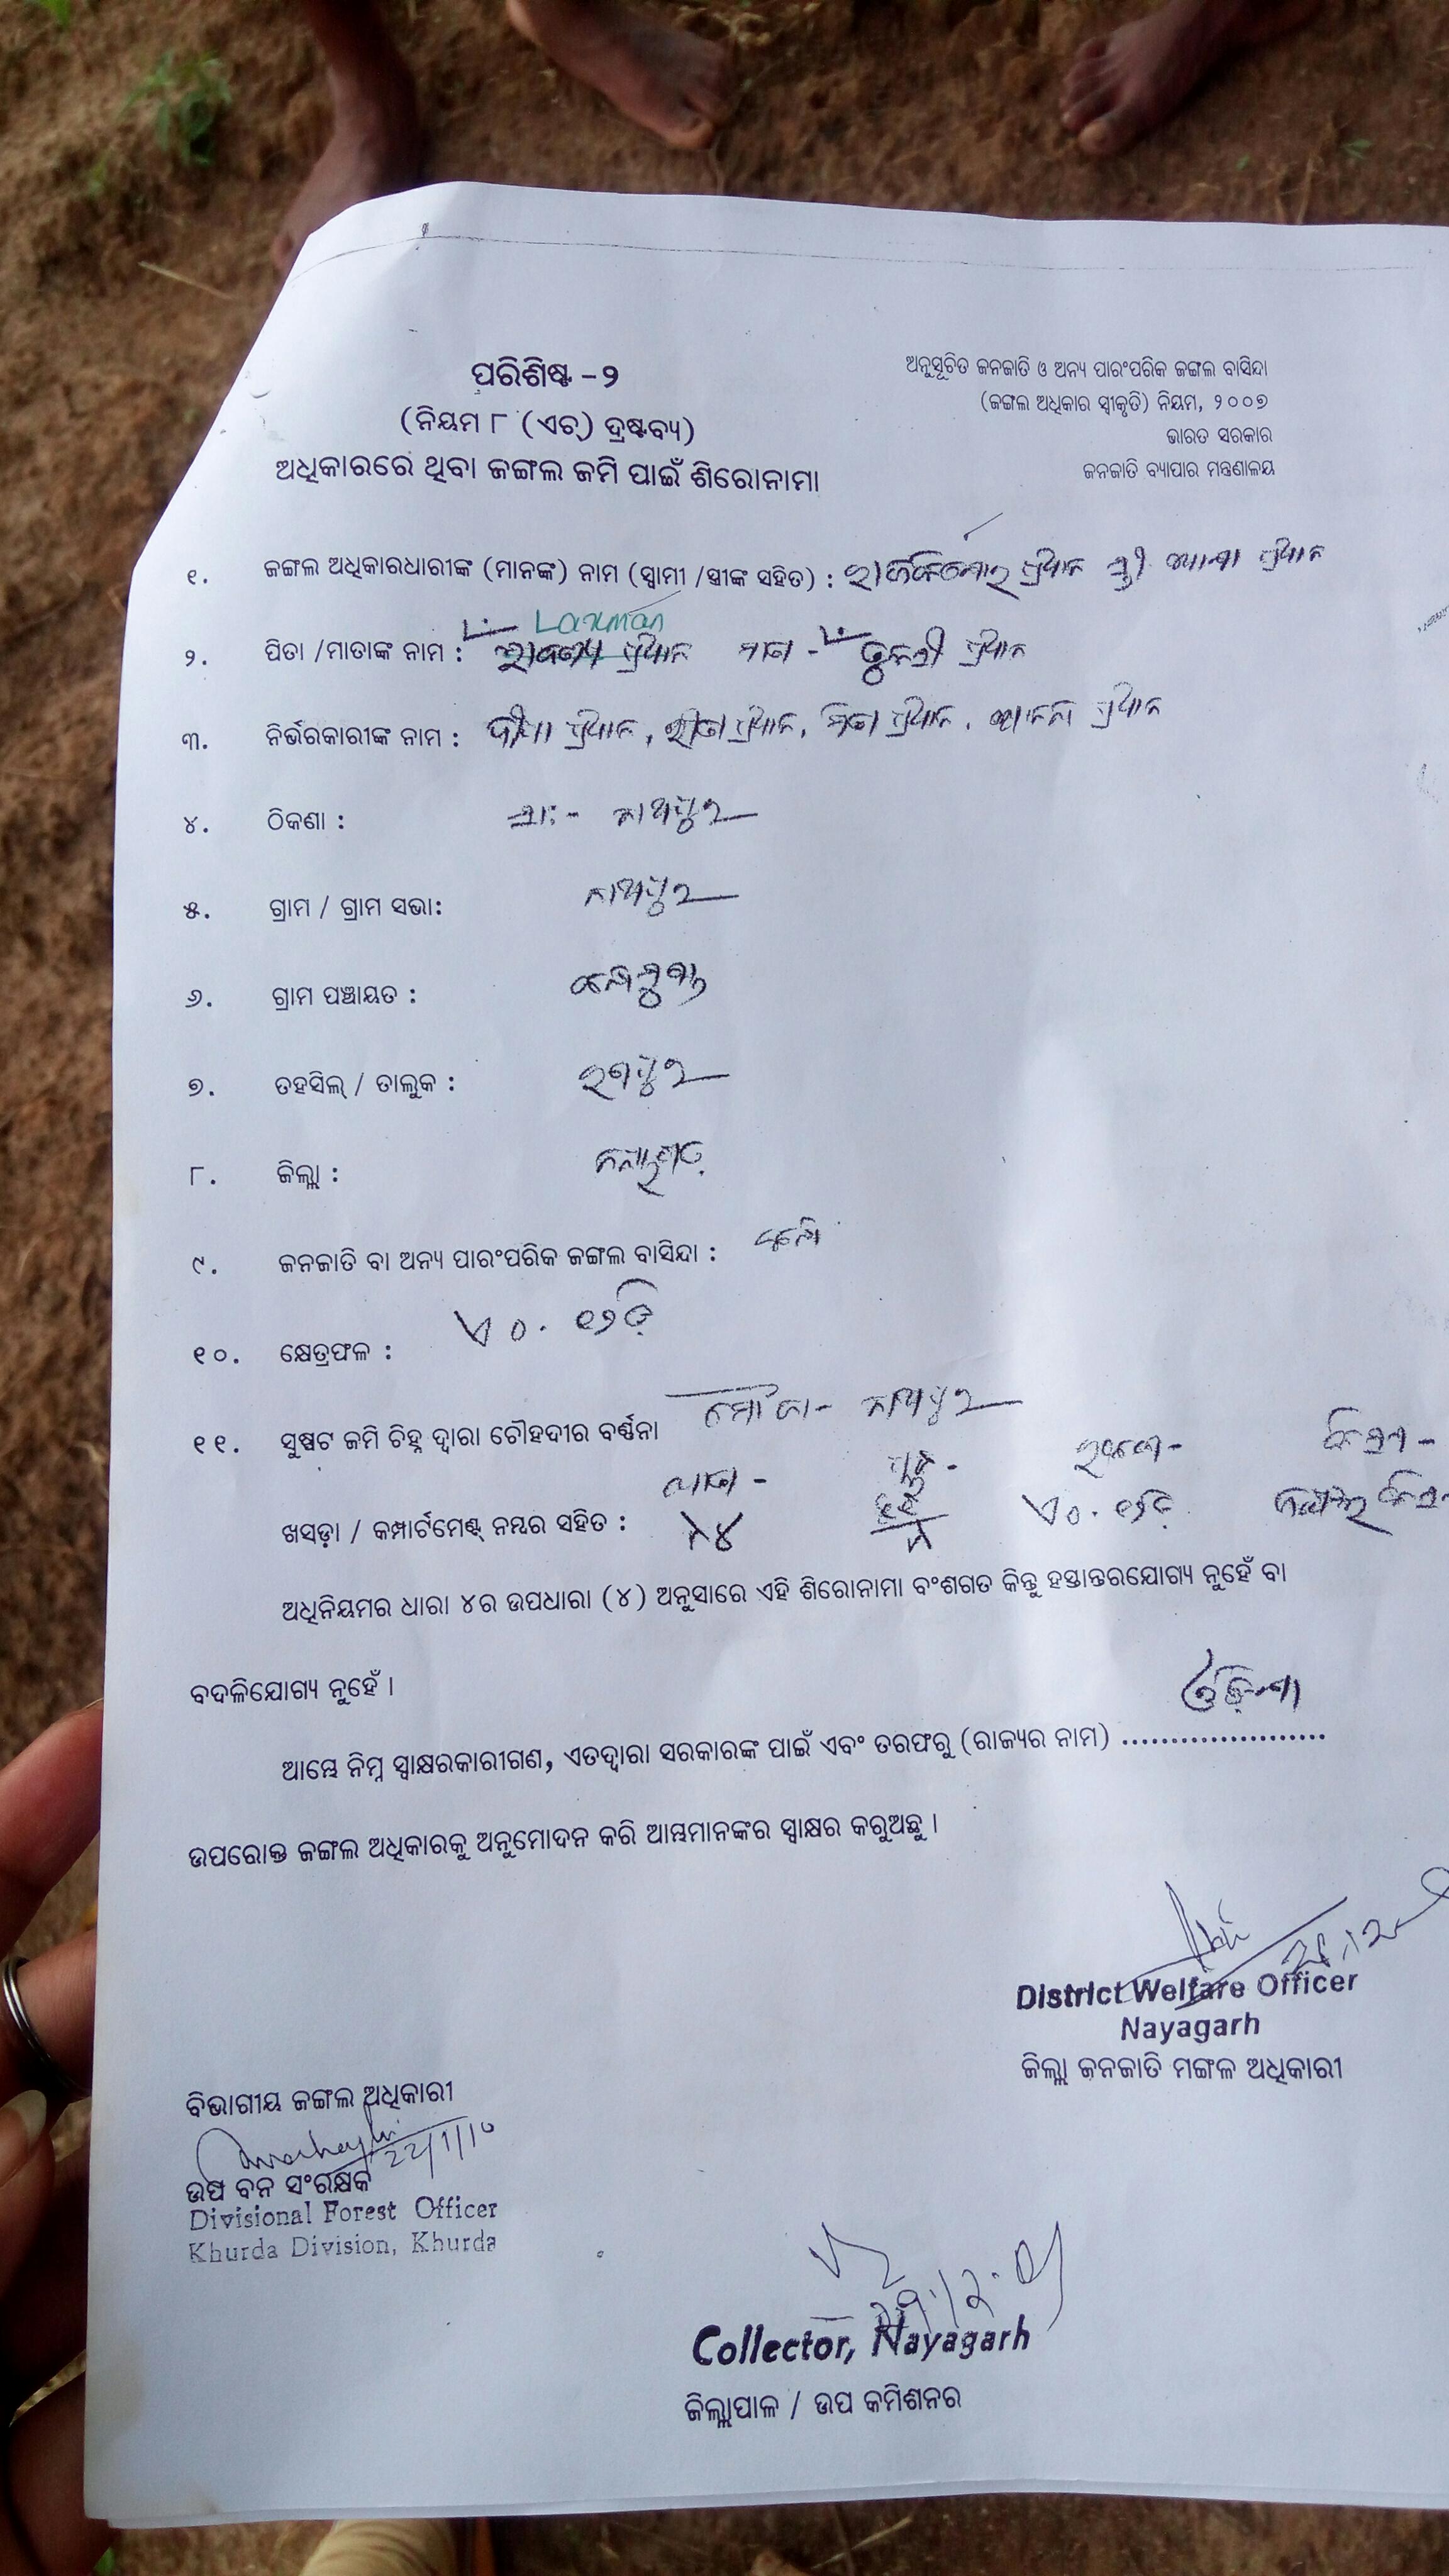 ପରିଶିଷ୍ଟ -୨
(ନିୟମ ୮ (ଏଚ୍) ଦ୍ରଷ୍ଟବ୍ୟ)
ଅଧିକାରରେ ଥିବା ଜଙ୍ଗଲ ଜମି ପାଇଁ ଶିରୋନାମା
ଅନୁସୂଚିତ ଜନଜାତି ଓ ଅନ୍ୟ ପାରଂପରିକ ଜଙ୍ଗଲ ବାସିନ୍ଦା
(ଜଙ୍ଗଲ ଅଧିକାର ସ୍ୱୀକୃତି) ନିୟମ, ୨୦୦୭
ଭାରତ ସରକାର
ଜନଜାତି ବ୍ୟାପାର ମନ୍ତ୍ରଣାଳୟ
୧. ଜଙ୍ଗଲ ଅଧିକାରଧାରୀଙ୍କ (ମାନଙ୍କ) ନାମ (ସ୍ୱାମୀ /ସ୍ତ୍ରୀଙ୍କ ସହିତ) : ପ୍ରଧାନ ସ୍ତ୍ରୀ ପ୍ରଧାନ
Laxman
୨. ପିତା /ମାତାଙ୍କ ନାମ : ପ୍ରଧାନ ମାତା - ପ୍ରଧାନ
୩. ନିର୍ଭରକାରୀଙ୍କ ନାମ : ପ୍ରଧାନ, ପ୍ରଧାନ, ପ୍ରଧାନ, ପ୍ରଧାନ
୪. ଠିକଣା : ଗ୍ରା:- ନାଥପୁର
୫. ଗ୍ରାମ / ଗ୍ରାମ ସଭା: ନାଥପୁର
୬. ଗ୍ରାମ ପଞ୍ଚାୟତ :
୭. ତହସିଲ୍ / ତାଲୁକ : ରଣପୁର
୮. ଜିଲ୍ଲା : ନୟାଗଡ଼
୯. ଜନଜାତି ବା ଅନ୍ୟ ପାରଂପରିକ ଜଙ୍ଗଲ ବାସିନ୍ଦା :
୧୦. କ୍ଷେତ୍ରଫଳ : ଏ ୦. ୧୨ଡ଼ି
୧୧. ସୁଷ୍ପଟ ଜମି ଚିହ୍ନ ଦ୍ୱାରା ଚୌହଦୀର ବର୍ଣ୍ଣନା ମୌଜା- ନାଥପୁର
ଖାତା - ପ୍ଲଟ - ରକବା - କିସମ -
ଖସଡ଼ା / କମ୍ପାର୍ଟମେଣ୍ଟ୍ ନମ୍ବର ସହିତ : ଏ ୦. ୧୨ଡ଼ି
ଅଧିନିୟମର ଧାରା ୪ର ଉପଧାରା (୪) ଅନୁସାରେ ଏହି ଶିରୋନାମା ବଂଶଗତ କିନ୍ତୁ ହସ୍ତାନ୍ତରଯୋଗ୍ୟ ନୁହେଁ ବା
ବଦଳିଯୋଗ୍ୟ ନୁହେଁ ।
ଓଡ଼ିଶା
ଆମ୍ଭେ ନିମ୍ନ ସ୍ୱାକ୍ଷରକାରୀଗଣ, ଏତଦ୍ଦ୍ୱାରା ସରକାରଙ୍କ ପାଇଁ ଏବଂ ତରଫରୁ (ରାଜ୍ୟର ନାମ) .....................
ଉପରୋକ୍ତ ଜଙ୍ଗଲ ଅଧିକାରକୁ ଅନୁମୋଦନ କରି ଆମ୍ଭମାନଙ୍କର ସ୍ୱାକ୍ଷର କରୁଅଛୁ ।
District Welfare Officer
Nayagarh
ଜିଲ୍ଲା ଜନଜାତି ମଙ୍ଗଳ ଅଧିକାରୀ
ବିଭାଗୀୟ ଜଙ୍ଗଲ ଅଧିକାରୀ
22/1/10
ଉପ ବନ ସଂରକ୍ଷକ
Divisional Forest Officer
Khurda Division, Khurda
Collector, Nayagarh
ଜିଲ୍ଲାପାଳ / ଉପ କମିଶନର